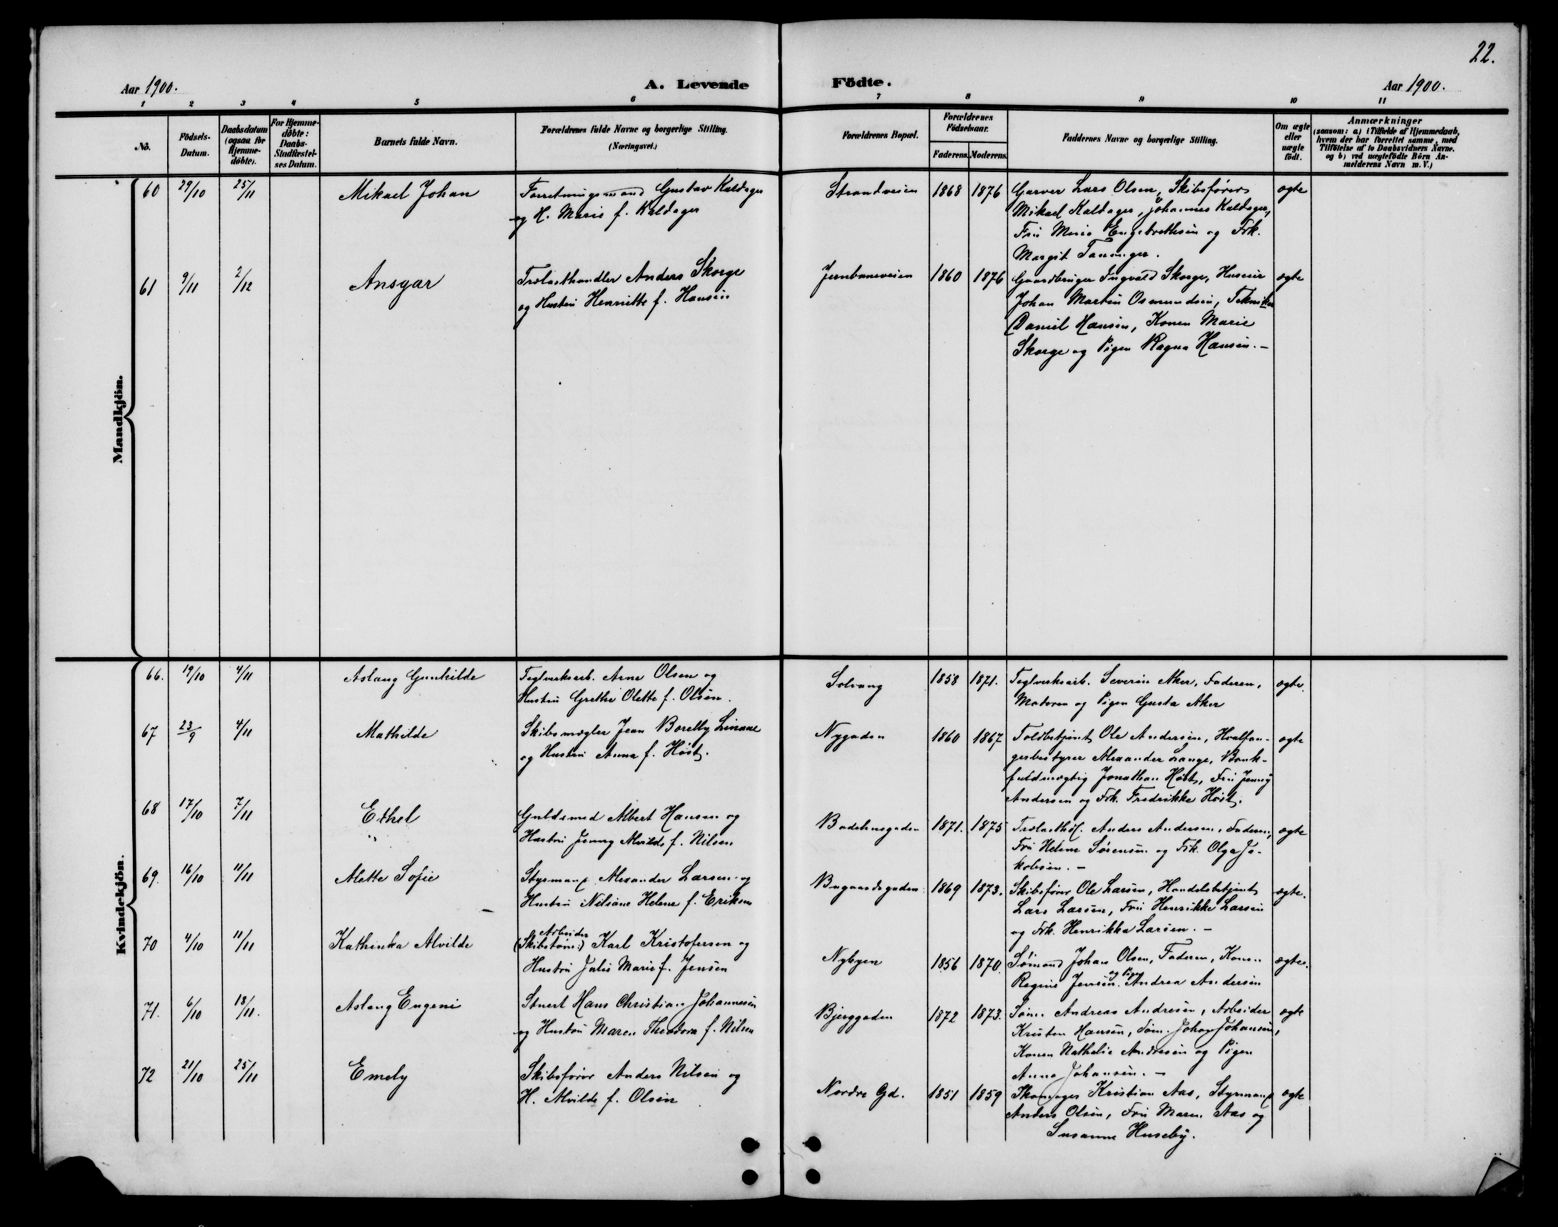 22.
Aar 1900.
A. Levende Födte.
Aar 1900.
1 2 3 4 5 6 7 8 9 10 11
No.
Födsels-
Datum.
Daabsdatum
(ogsaa for
Hjemme-
döbte).
For Hjemme-
döbte:
Daabs-
Stadfæstel-
ses Datum.
Barnets fulde Navn.
Forældrenes fulde Navne og borgerlige Stilling.
(Næringsvei.)
Forældrenes Bopæl.
Forældrenes
Födselsaar.
Faderens. Moderens.
Faddernes Navne og borgerlige Stilling.
Om ægte
eller
uægte
födt.
Anmærkninger
(saasom: a) i Tilfælde af Hjemmedaab,
hvem der har forrettet samme, med
Tilföielse af to Daabsvidners Navne,
og b) ved uægtefödte Börn An-
melderens Navn m. V.)
Mandkjön.
60 29/10 25/11 Mikael Johan
Forretningsmand Gustav Kaldager
og H. Marie f. Kaldager
Strandveien 1868 1876
Garver Lars Olsen, Skibsfører
Mikael Kaldager, Johannes Kaldager,
Fru Marie Engebrethsen og Frk.
Margit
ægte
61 9/11 2/12 Ansgar
Trælasthandler Anders Skorge
og Hustru Henriette f. Hansen
Jernbaneveien 1860 1876
Gaardbruger Ingvald Skorge, Huseier
Johan Martin Osmundsen,
Daniel Hansen, Konen Marie
Skorge og Pigen Ragna Hansen. –
ægte
Kvindekjön.
66. 19/10 4/11 Aslaug Gunhilde
Teglverksarb. Arne Olsen og
Hustru Grethe Olette f. Olsen.
Solvang 1858 1871.
Teglverksarb. Severin Aker, Faderen,
Moderen og Pigen Gusta Aker
ægte.
67 23/9 4/11 Mathilde
Skibsmægler Jean Borelly
og Hustru Anna f. Høst.
Nygaden 1860 1867
Toldbetjent Ole Andersen, Hvalfan-
gerbestyrer Alexander Lange, Bank-
fuldmægtig Jonathan Høst, Fru Jenny
Andersen og Frk. Fredrikke Høst.
ægte
68 17/10 7/11 Ethel
Guldsmed Albert Hansen og
Hustru Jenny Alvilde f. Nilsen
1871. 1875
Trælasthdl. Anders Andersen, Faderen,
Fru Helene Sørensen og Frk. Olga Ja-
kobsen. –
ægte
69. 16/10 11/11 Alette Sofie
Styrmand Alexander Larsen og
Hustru Nilsine Helene f. Eriksen
Bugaardsgaden 1869 1873.
Skibsfører Ole Larsen, Handelsbetjent
Lars Larsen, Fru Henrikke Larsen
og Frk. Henrikka Larsen. –
ægte.
70 4/10 11/11 Kathinka Alvilde
Arbeider
(Skibstøm:) Karl Kristofersen og
Hustru Julie Marie f. Jensen
Nybyen 1856 1870
Sømand Johan Olsen, Faderen, Konen
Regine Jensen og Pigen Andrea Andersen
ægte.
71. 6/10 18/11. Aslaug Eugeni
Stuert Hans Christian Johannesen
og Hustru Maren Theodora f. Nilsen
Bjerggaden 1872 1873.
Søm. Andreas Andresen, Arbeider
Kristen Hansen, Søm. Johan Johansen,
Konen Nathalie Andresen og Pigen
Anna Johansen. –
ægte
72 21/10 25/11 Emely
Skibsfører Anders Nilsen og
H. Alvilde f. Olsen
Nordre Gd. 1851 1859
Skomager Kristian Aas, Styrmand
Anders Olsen, Fru Maren Aas og
Susanne Huseby.
ægte